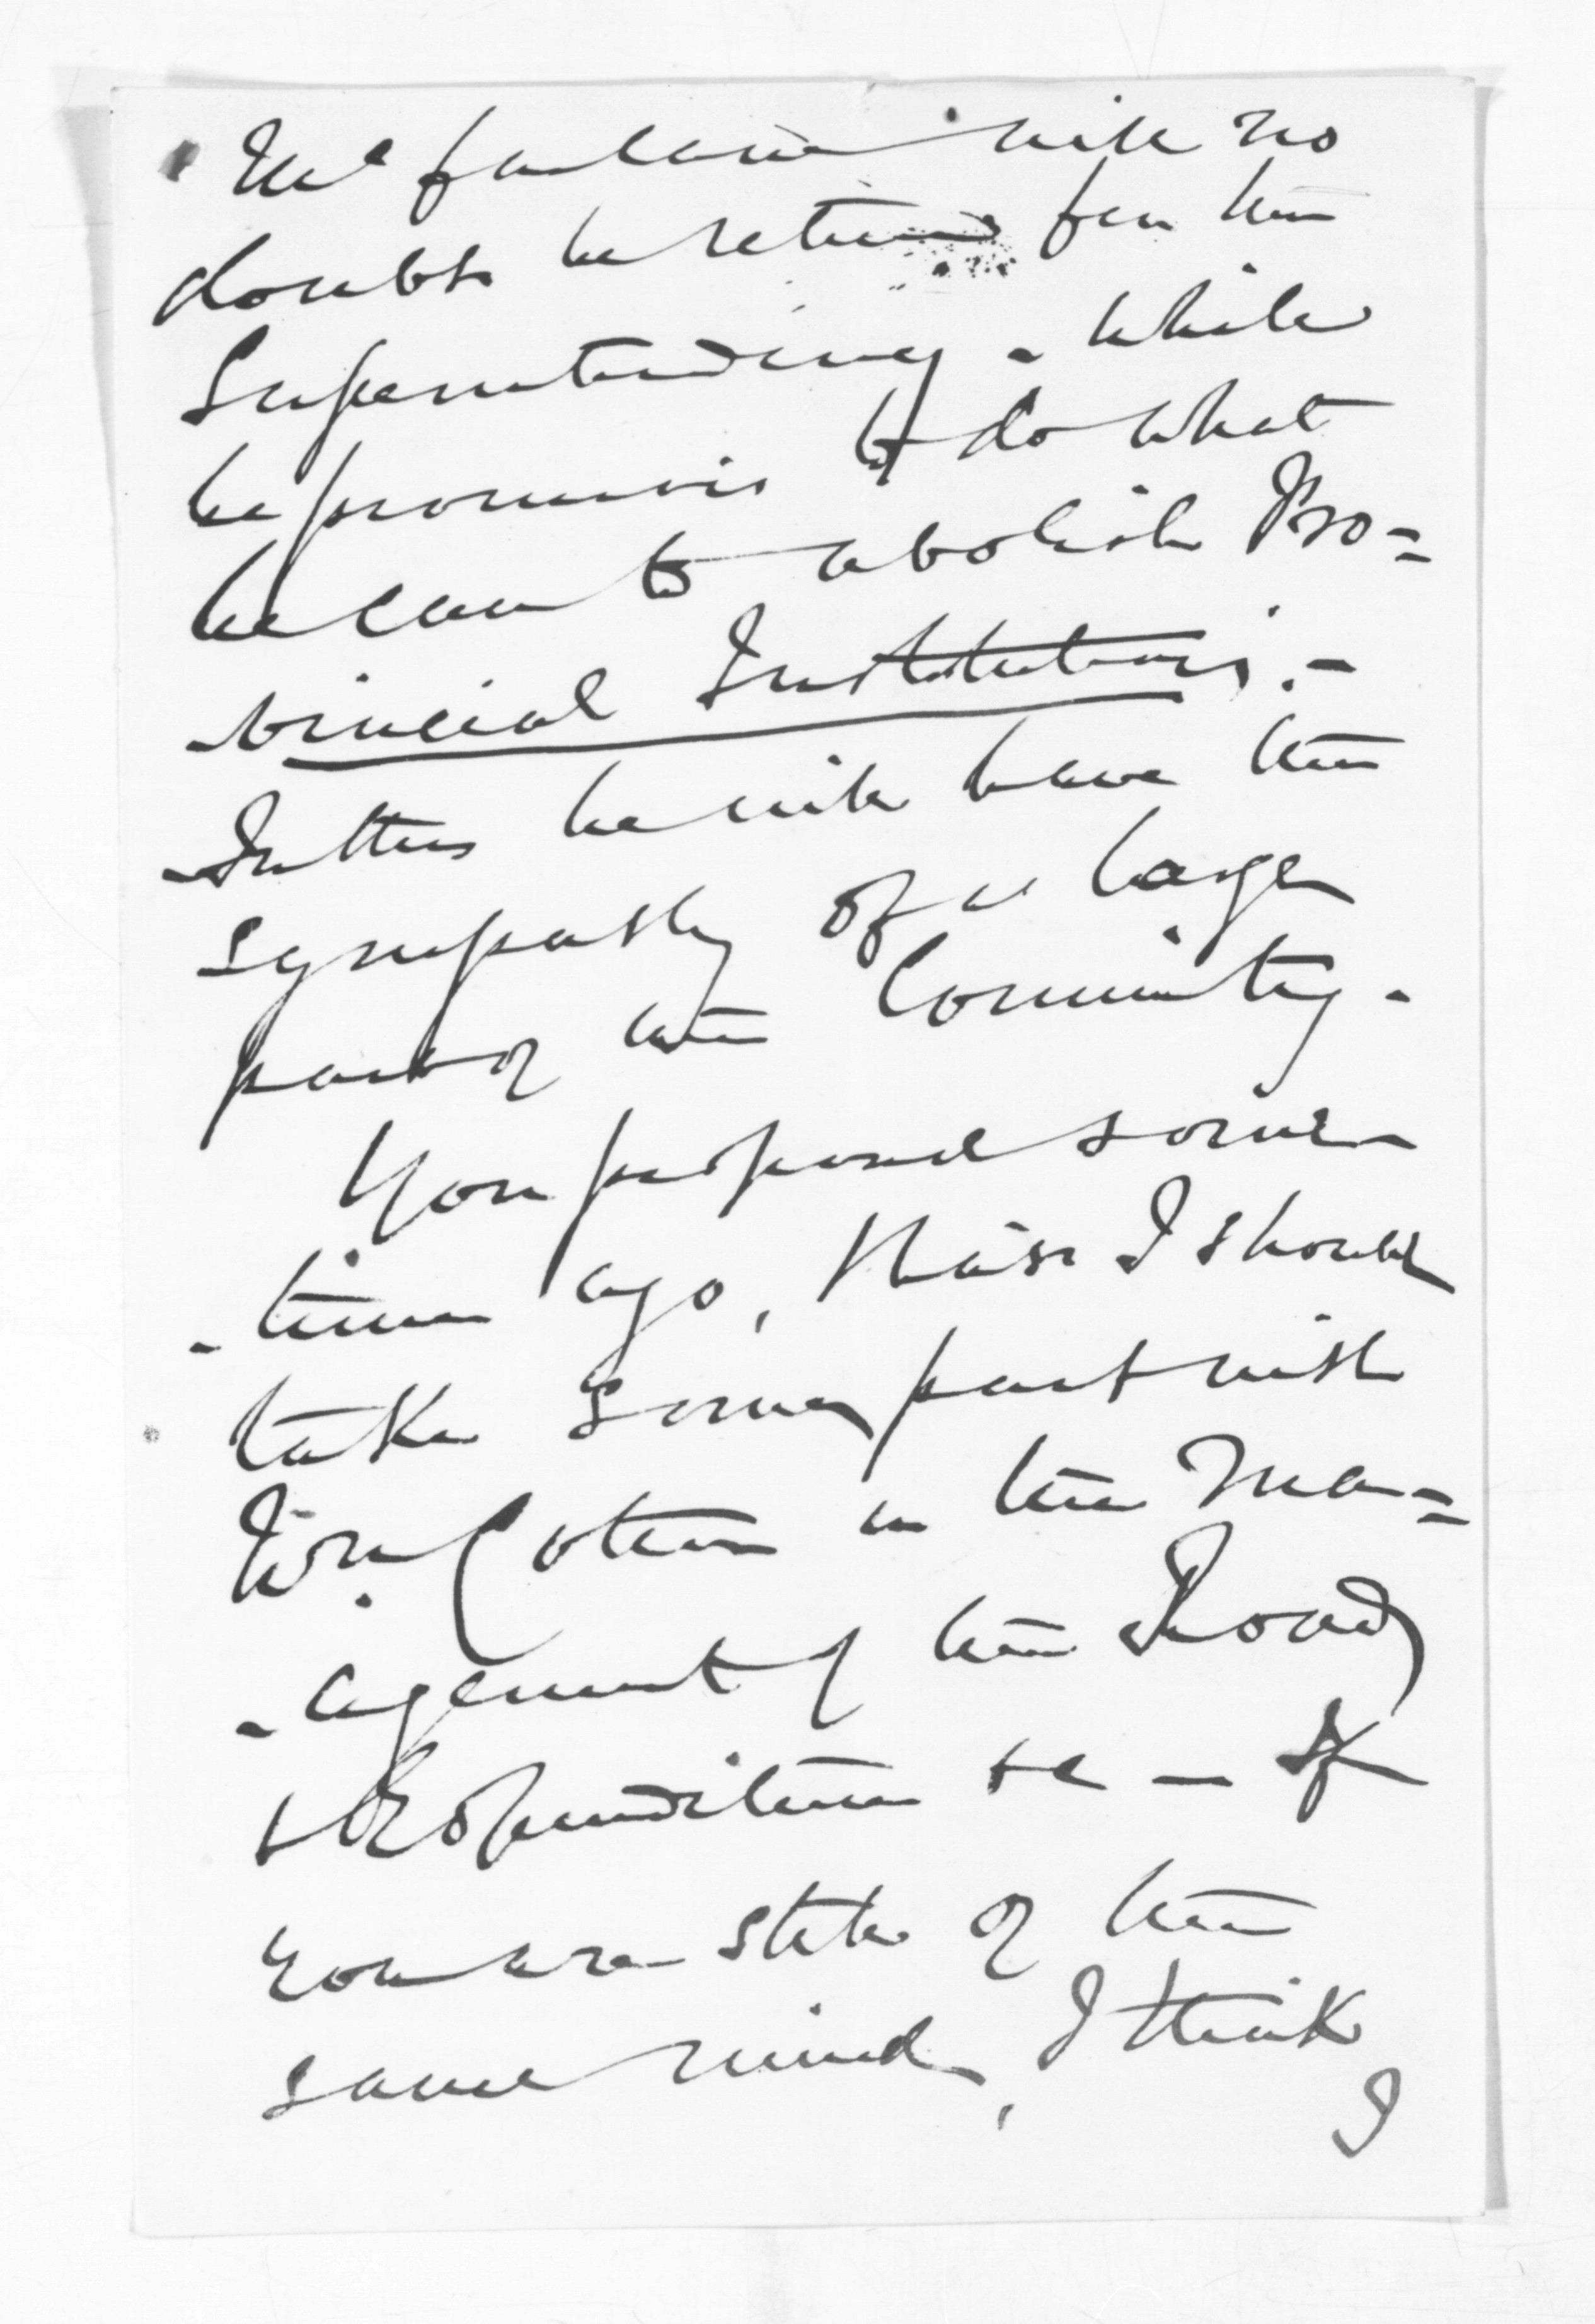 McFarlane will no
doubt be returned for the
Superintendency. - While
he promises to do what
he can to abolish Pro=
-vincial Institutions. -
In this he will have the
sympathy of a large
part of the Community.
You proposed some-
-time ago, that I should
take some part with
Wm Colenso in the Ma=
-agement of the Road
& Expenditure &c - If
you are still of the
same mind, I think
I